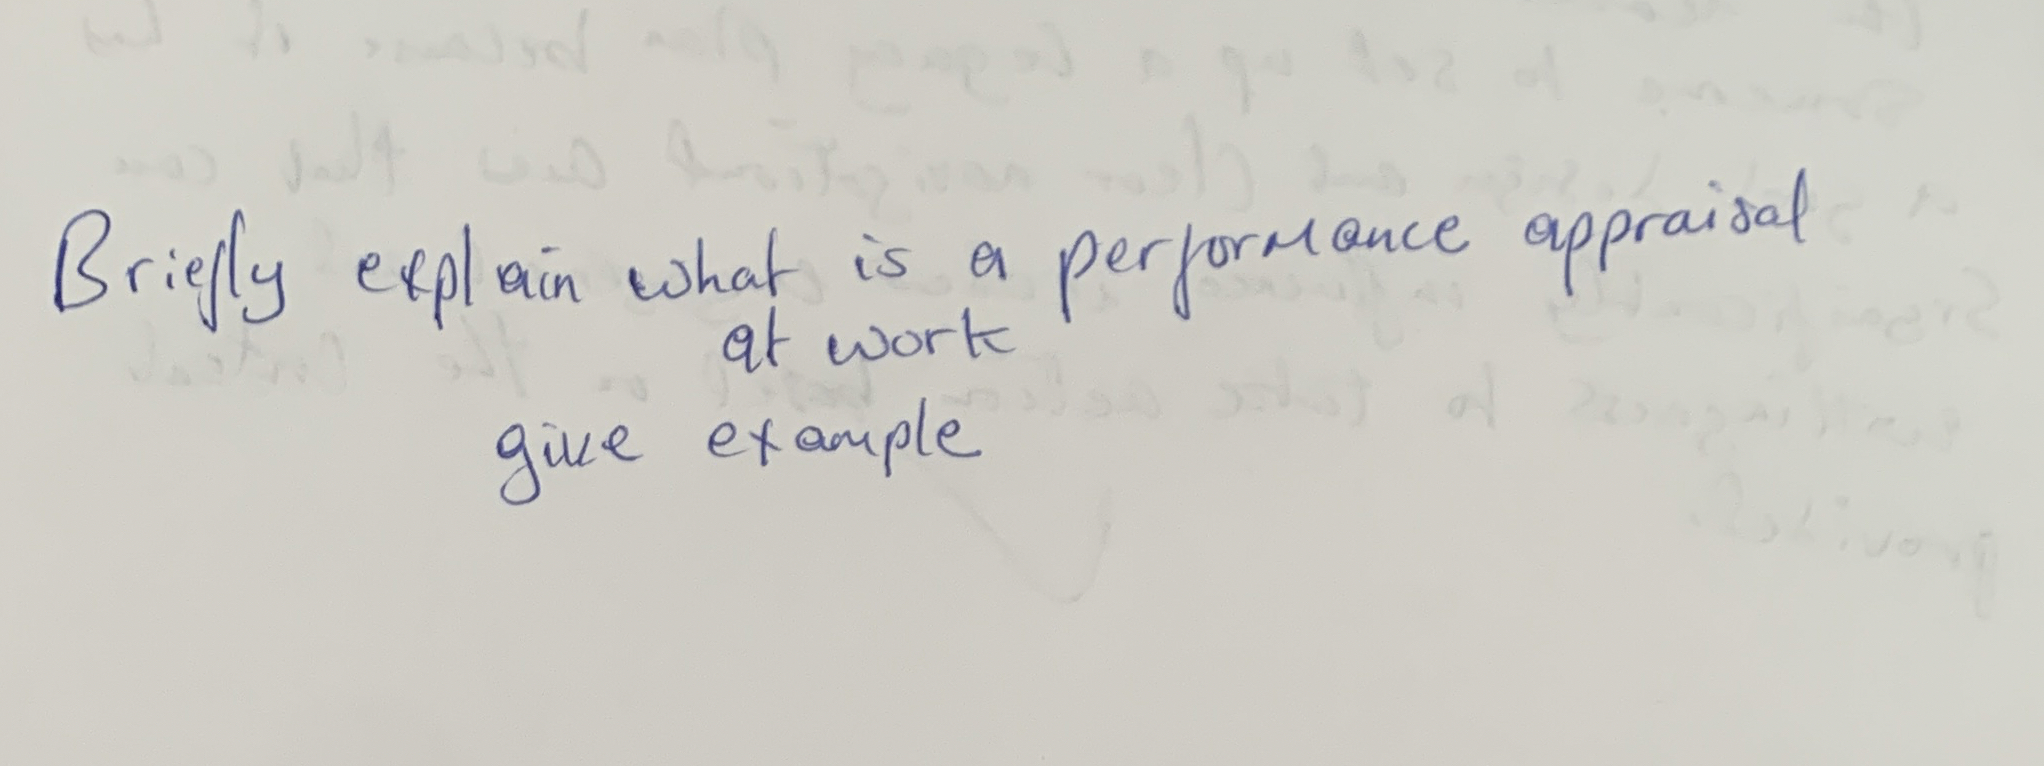 Briefly explain what is a performance appraisal
at work
give example